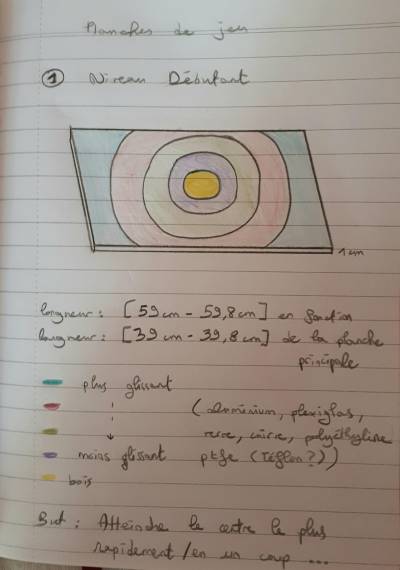 Planches de jeu
① Niveau Débutant
1 cm
longueur : [59 cm - 59,8 cm] en fonction
largueur : [39 cm - 39,8 cm] de la planche
principale
plus glissant
(aluminium, plexiglas,
verre, cuivre, polyéthylène
moins glissant ptfe (téflon ?))
bois
But : Atteindre le centre le plus
rapidement / en un coup ...